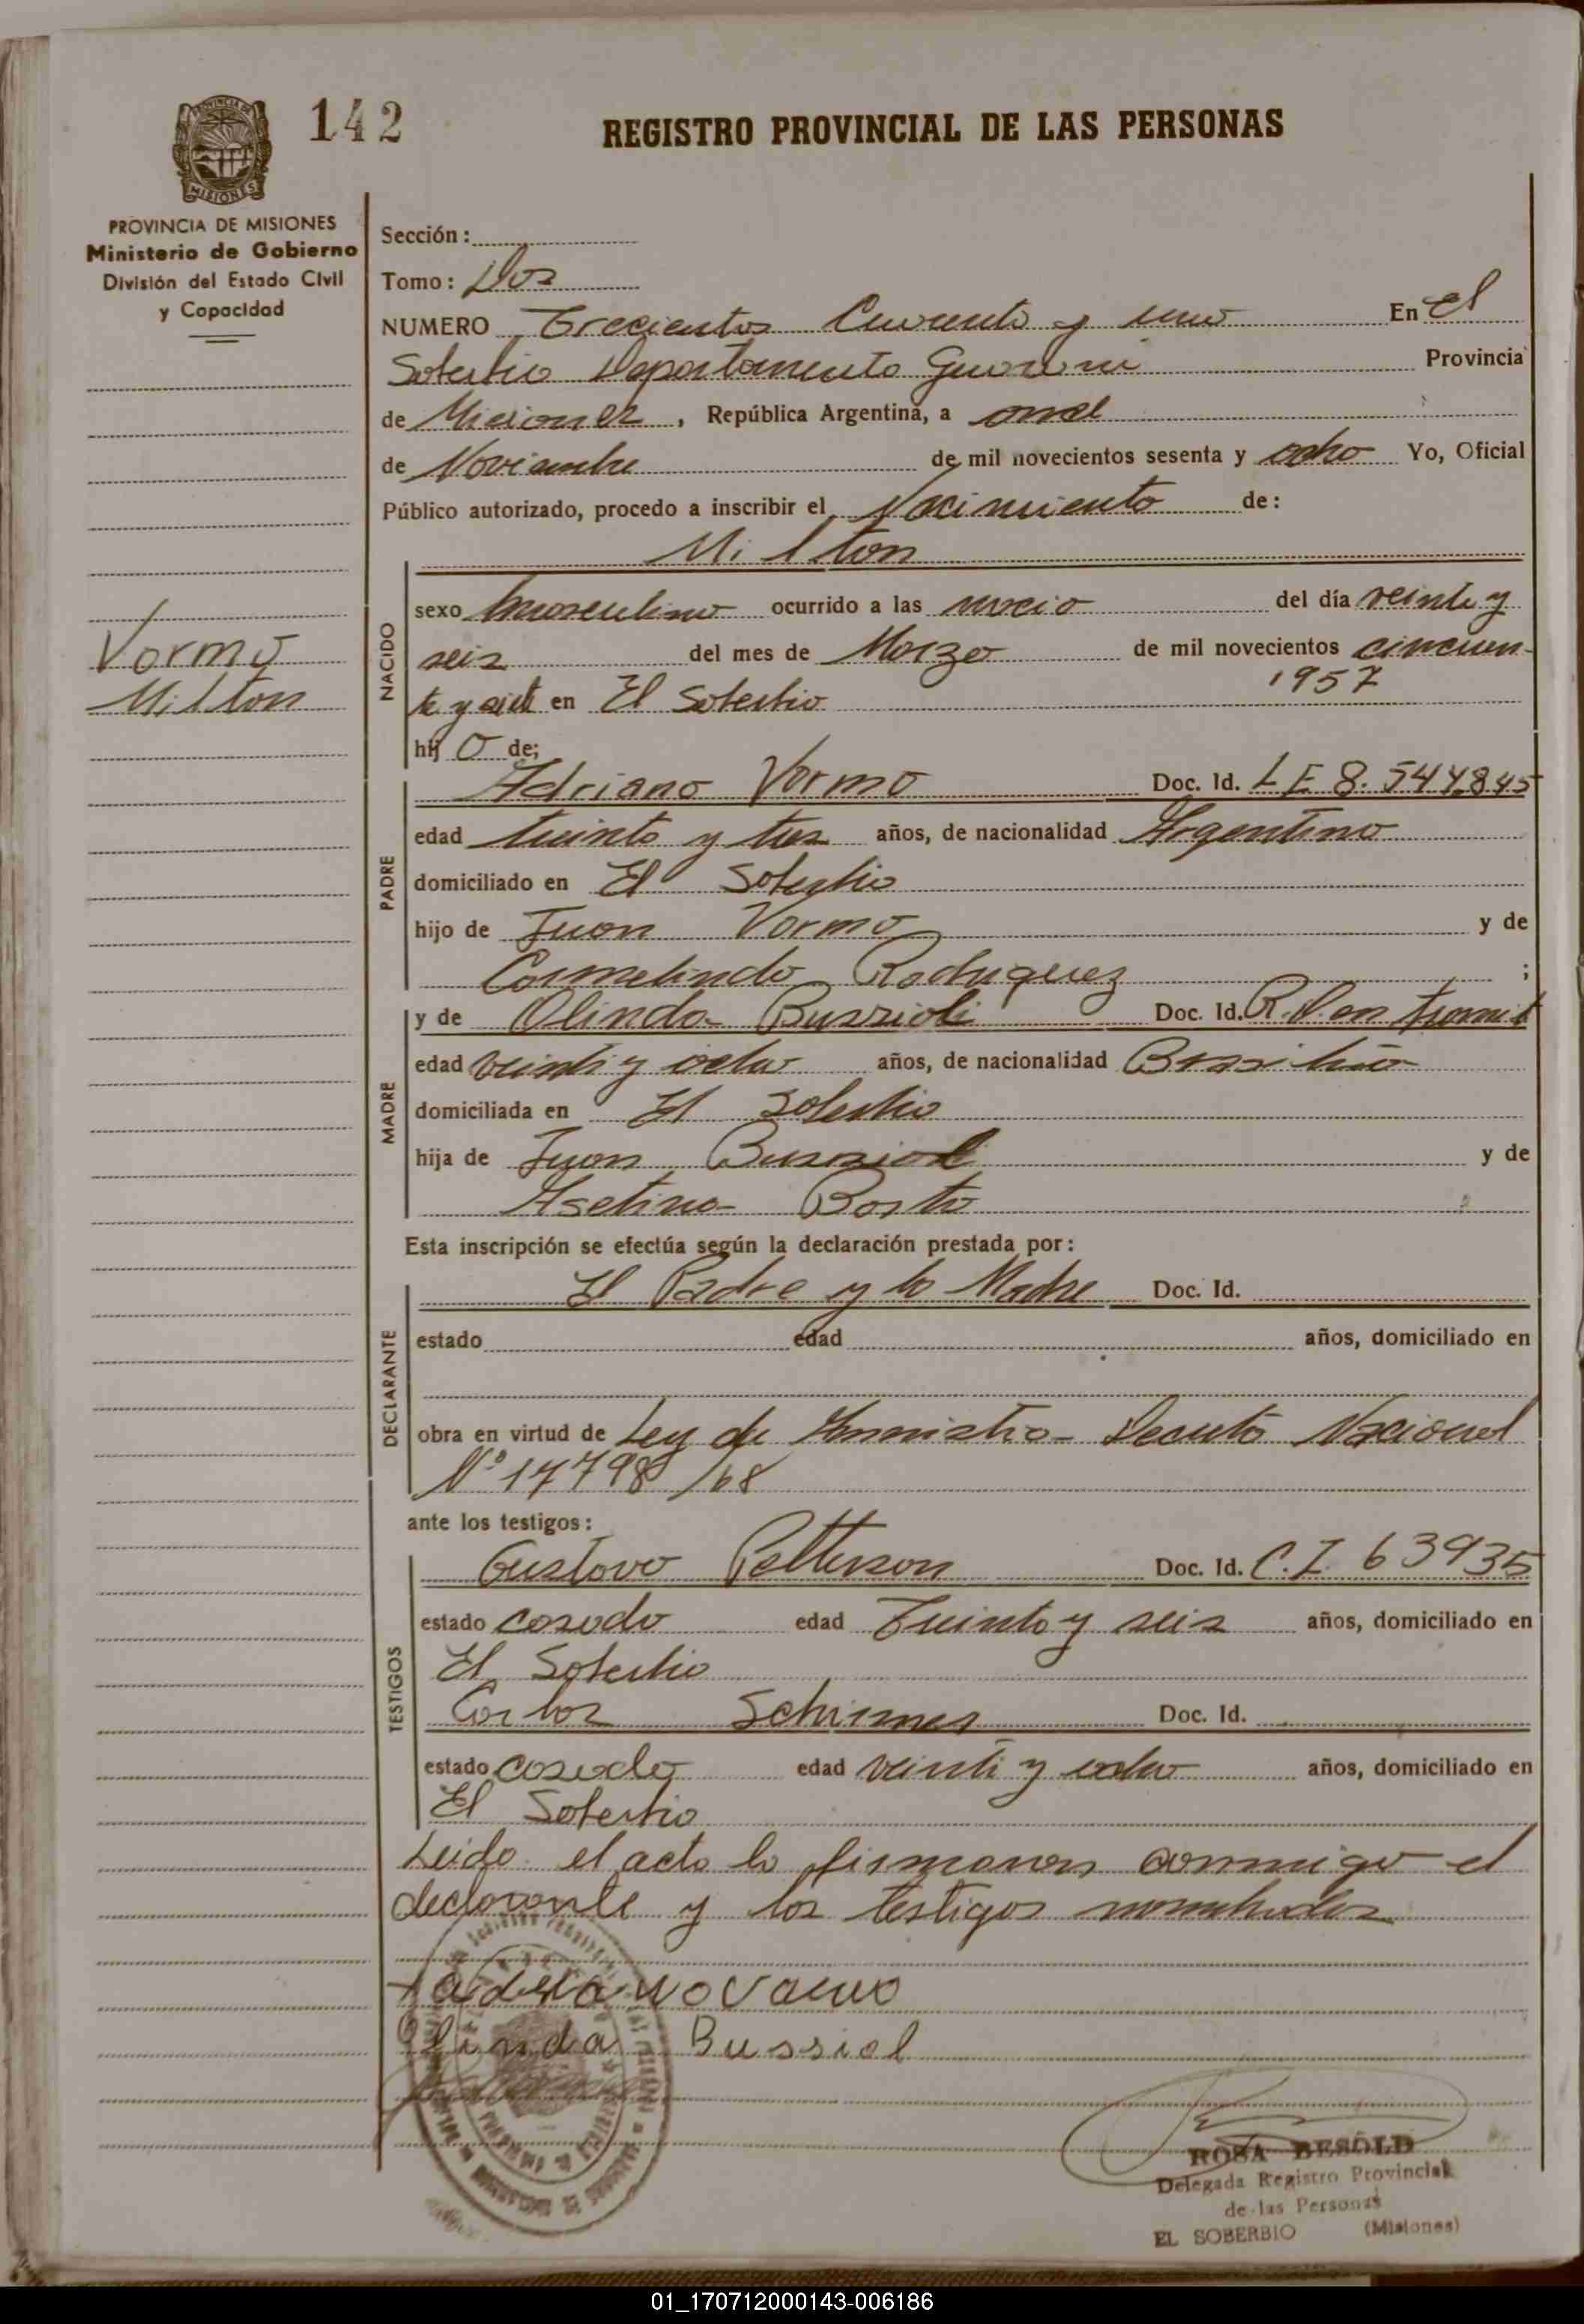 142
REGISTRO PROVINCIAL DE LAS PERSONAS
PROVINCIA DE MISIONES
Ministerio de Gobierno
División del Estado Civil
y Capacidad
Vormo
Milton
Sección:
Tomo: Dos
NUMERO Trecientos Cuarenta y uno En El
Soberbio Departamento Guarani Provincia
de Misiones, República Argentina, a once
de Noviembre de mil novecientos sesenta y ocho Yo, Oficial
Público autorizado, procedo a inscribir el Nacimiento de:
Milton
NACIDO
sexo masculino ocurrido a las del día veinte y
seis del mes de Marzo de mil novecientos cincuen-
1957
ta y siete en El Soberbio
hij o de:
PADRE
Adriano Vormo Doc. Id. L E 8.544.845
edad treinta y tres años, de nacionalidad Argentino
domiciliado en El Soberbio
hijo de Juan Vormo y de
Carmelinda Rodriguez ;
MADRE
y de Olinda Bussiol Doc. Id. R. en tramit
edad veinti y ocho años, de nacionalidad
domiciliada en El Soberbio
hija de Juan Bussiol y de
y de
Esta inscripción se efectúa según la declaración prestada por:
DECLARANTE
El Padre y la Madre Doc. Id.
estado edad años, domiciliado en
obra en virtud de Ley de Amnistia Decreto Nacional
Nº 17798/68
ante los testigos:
TESTIGOS
Gustavo Petterson Doc. Id. C.I. 63935
estado casado edad Treinta y seis años, domiciliado en
El Soberbio
Carlos Doc. Id.
estado casado edad veinti y ocho años, domiciliado en
El Soberbio
Leida el acta la firmaron conmigo el
declarante y los testigos nombrados
Olinda Bussiol
ROSA BESOLD
Delegada Registro Provincial
de las Personas
EL SOBERBIO (Misiones)
01_170712000143-006186